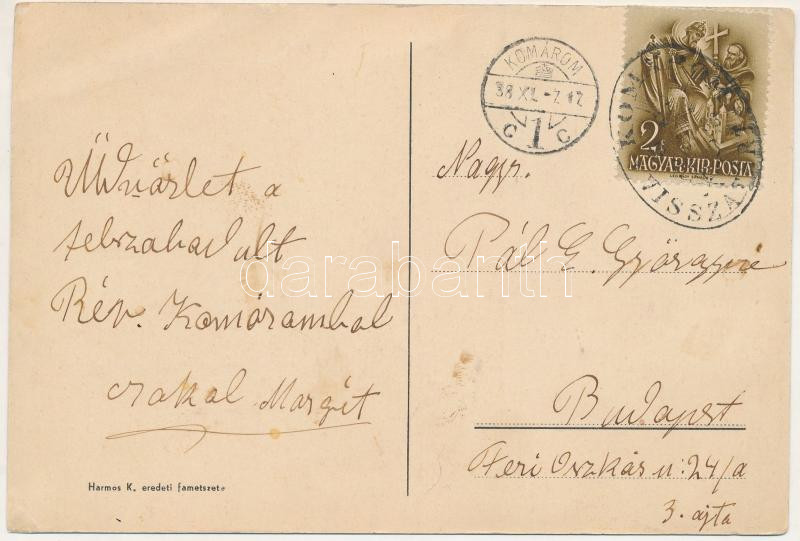 Üdvözlet a
felszabadult
Rév. Komáromból
Czakal Margit
Harmos K. eredeti fametszete
KOMÁROM
38 XI. -7.17
C 1 C
2f
MAGYAR·KIR·POSTA
KOMÁROM
VISSZA
Nagys.
Pál E. Györgyné
Budapest
Feri Oszkár u: 24/a
3. ajtó
darabanth